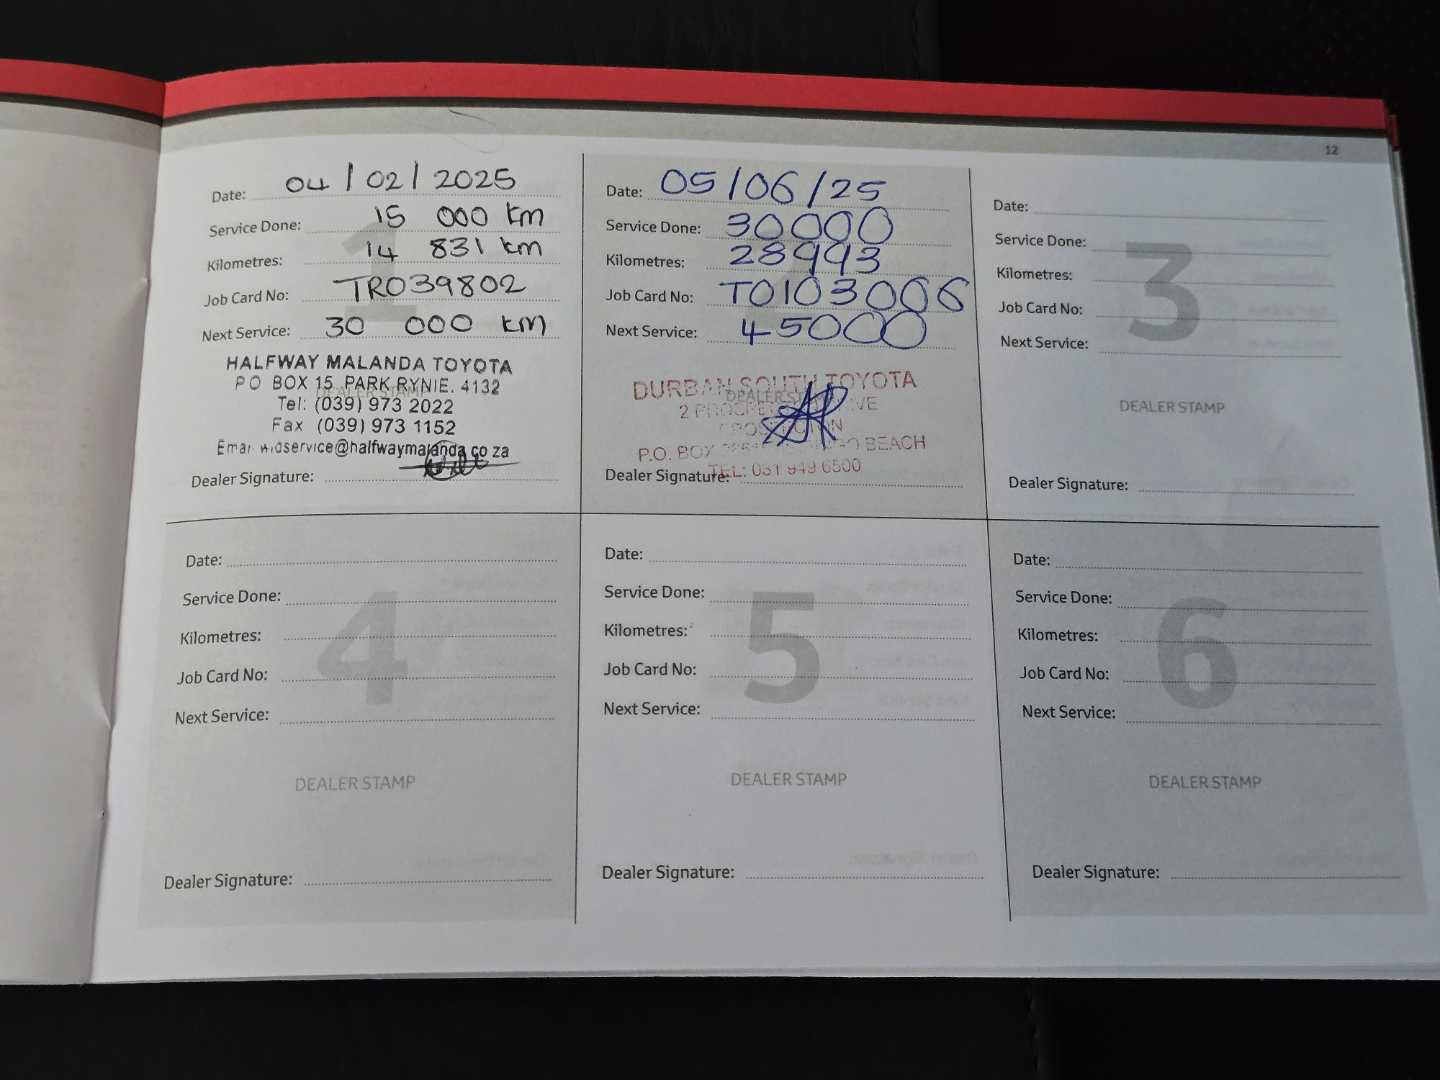 12
Date: 04/02/2025
Service Done: 15 000 km
Kilometres: 14 831 km
Job Card No: TR039802
Next Service: 30 000 km
HALFWAY MALANDA TOYOTA
P O BOX 15 PARK RYNIE. 4132
DEALER STAMP
Tel: (039) 973 2022
Fax (039) 973 1152
@halfwaymalanda.co za
Dealer Signature:
1
Date: 05/06/25
Service Done: 30000
Kilometres: 28993
Job Card No: T0103006
Next Service: 45000
DURBAN SOUTH TOYOTA
DEALER STAMP
2
P.O. BOX BEACH
TEL: 031 949 6500
Dealer Signature:
Date:
Service Done:
Kilometres:
Job Card No:
Next Service:
3
DEALER STAMP
Dealer Signature:
Date:
Service Done:
Kilometres:
Job Card No:
Next Service:
4
DEALER STAMP
Dealer Signature:
Date:
Service Done:
Kilometres:
Job Card No:
Next Service:
5
DEALER STAMP
Dealer Signature:
Date:
Service Done:
Kilometres:
Job Card No:
Next Service:
6
DEALER STAMP
Dealer Signature: